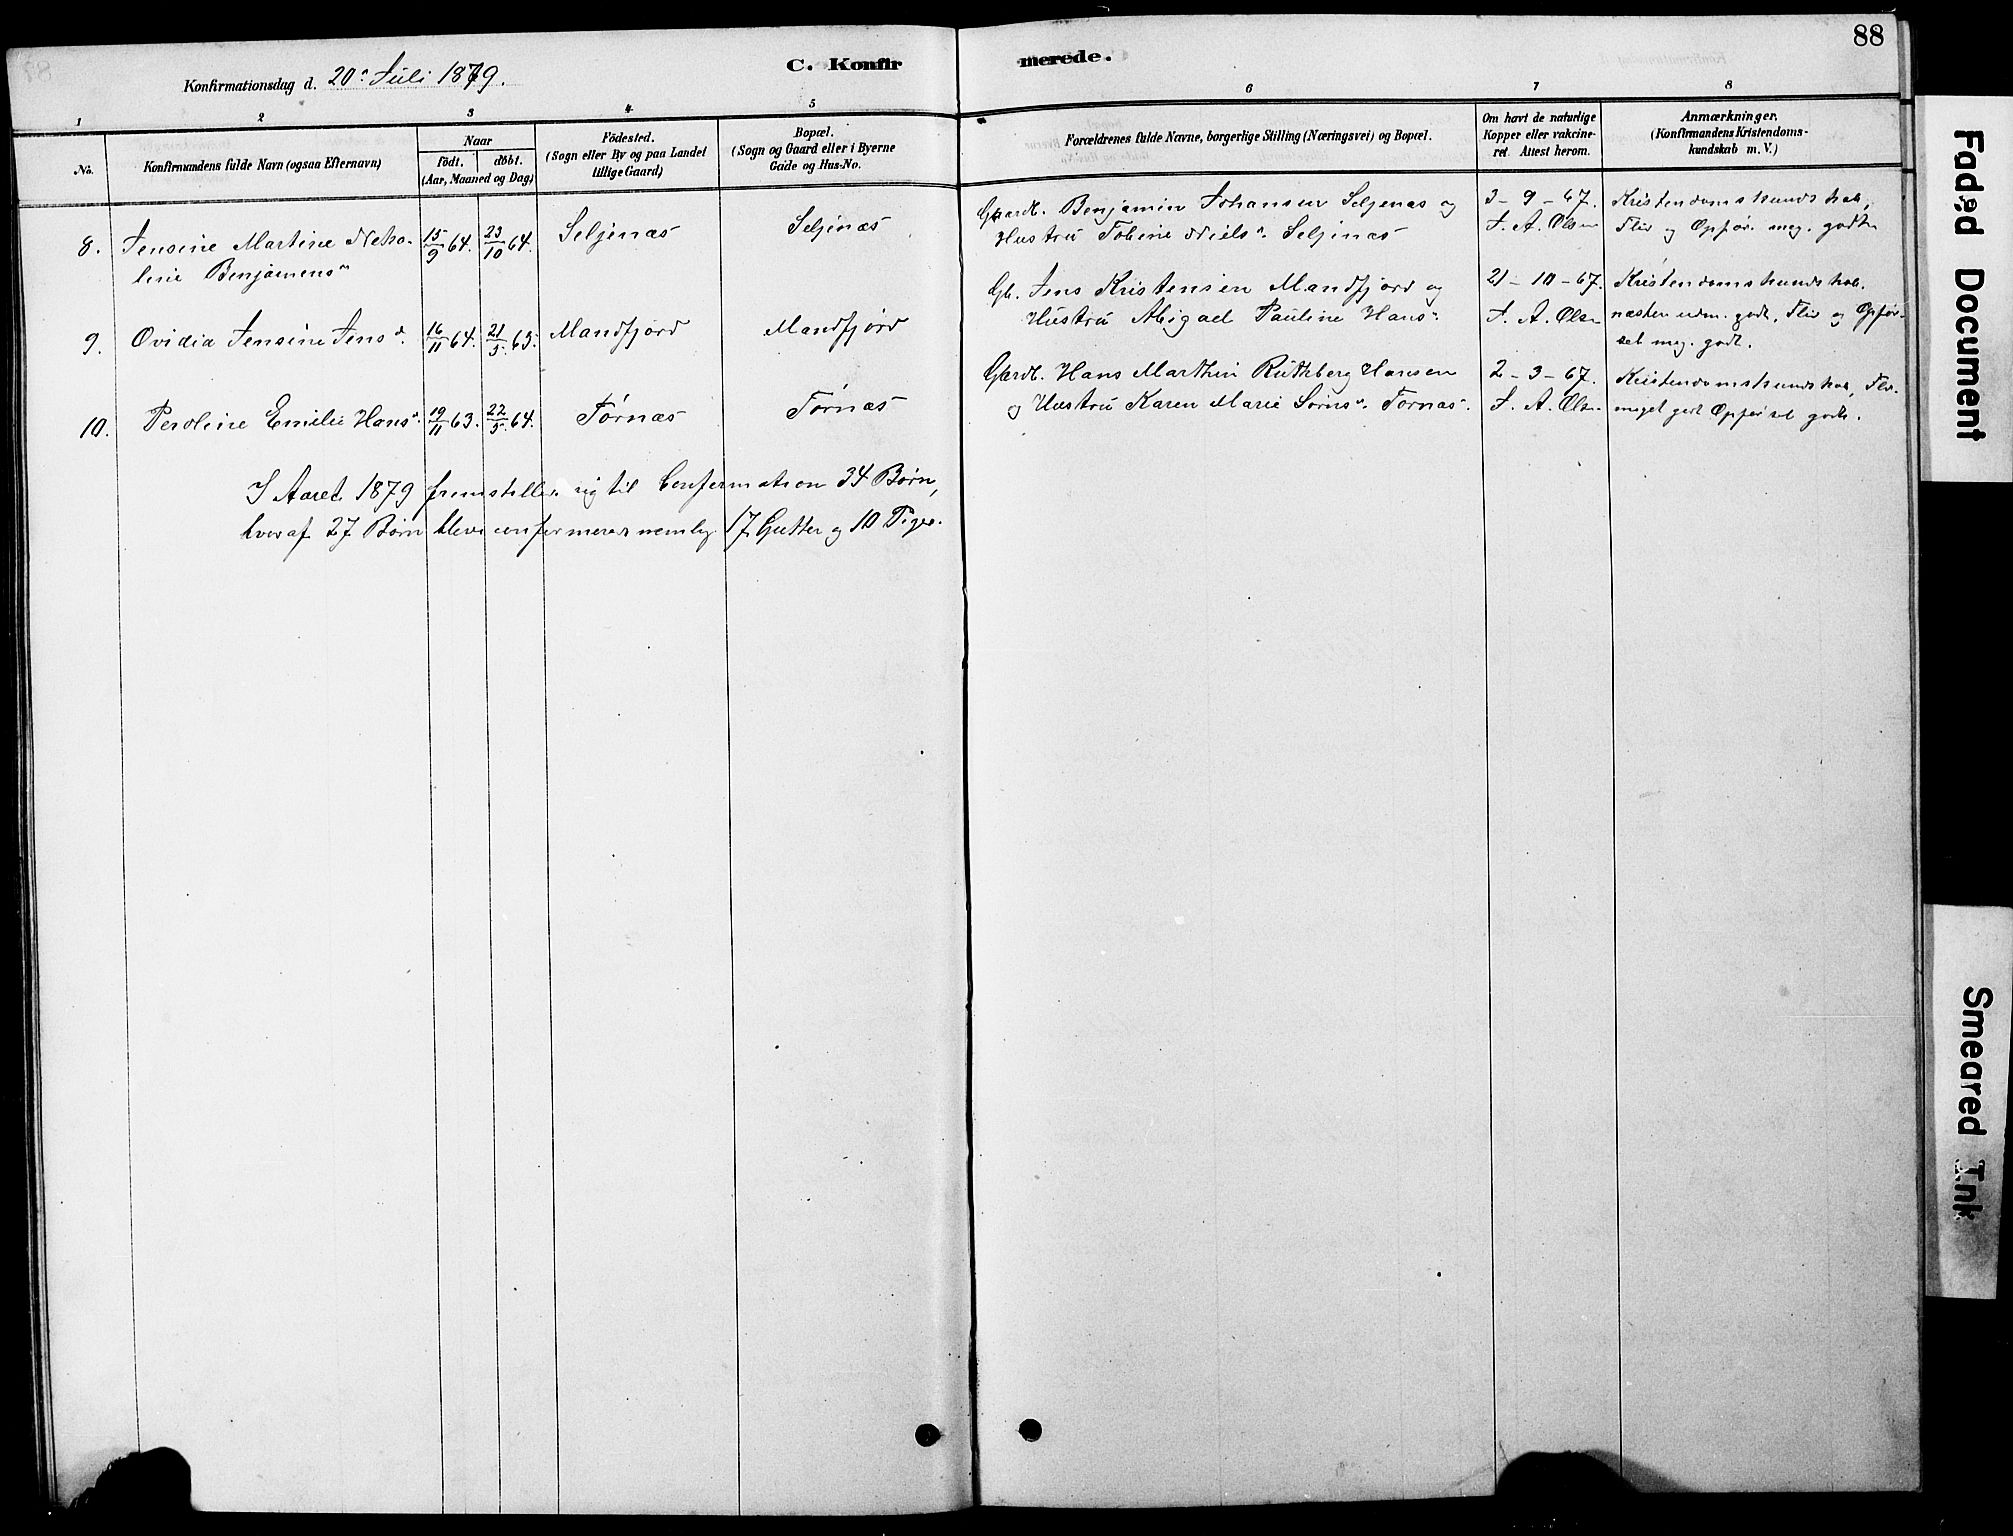 88
Konfirmationsdag d. 20de Juli 1879.
C. Konfir
merede.
1 2 3 4 5 6 7 8
No.
Konfirmandens fulde Navn (ogsaa Efternavn)
Naar
födt. döbt.
(Aar, Maaned og Dag)
Födested.
(Sogn eller By og paa Landet
tillige Gaard)
Bopæl.
(Sogn og Gaard eller i Byerne
Gade og Hus-No.
Forældrenes fulde Navne, borgerlige Stilling (Næringsvei) og Bopæl.
Om havt de naturlige
Kopper eller vakcine-
ret. Attest herom.
Anmærkninger.
(Konfirmandens Kristendoms-
kundskab m. V.)
8. Jensine Martine Neko-
line Benjamensn
15/9 64. 23/10 64. Seljenæs Seljenæs
Gaardb. Benjamin Johansen Seljenæs og
Hustru Tobine Nielsn. Seljenæs
3-9-67.
J. A. Olsen
Kristendomskundskab,
Flid og Opför. meg. godt
9. Ovidia Jensine Jensd.
16/11 64. 21/5 65. Mandfjord Mandfjord
Gb. Jens Kristensen Mandfjord og
Hustru Abigael Pauline Hansn
21-10-67.
J. A. Olsen
Kristendomskundskab.
næsten udm. godt, Flid og Opför-
sel meg. godt.
10. Peroline Emilie Hansn
19/11 63. 22/5 64. Tørnæs Tørnæs
Gaardb. Hans Marthin Ruthberg Hansen
og Hustru Karen Marie Sörnsn. Tørnæs.
2-3-67.
J. A. Olsen
Kristendomskundskab, Flid
meget godt Opförsel godt.
I Aaret 1879 fremstilled sig til Confermation 34 Børn,
hvoraf 27 Børn bleve confermerede nemlig 17 Gutter og 10 Piger.
Faded Document
Smeared Ink